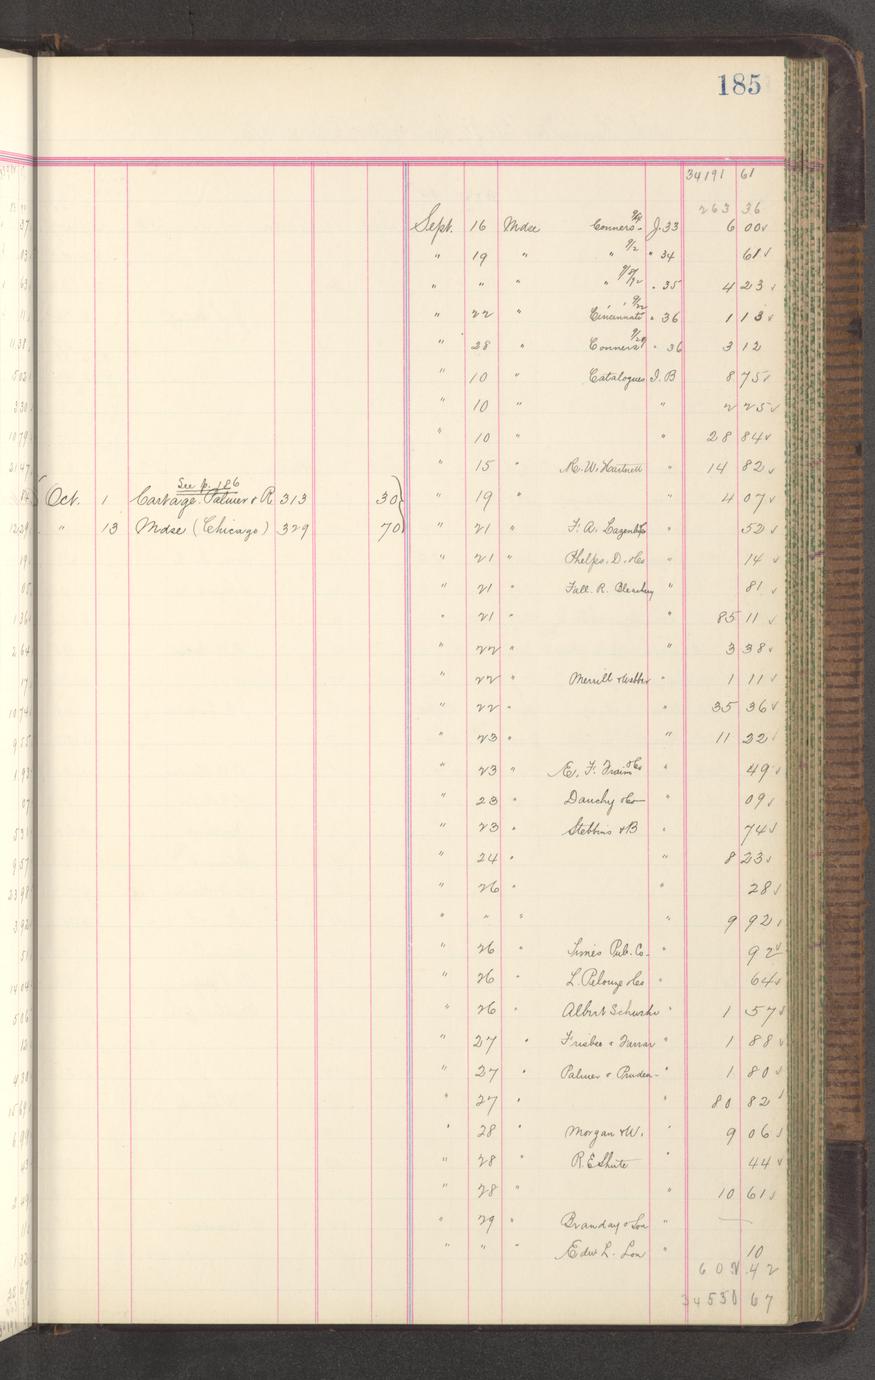 185
34191 61
263 36
Sept. 16 Mdse Conners 9/4 J. 33 6 00 ✓
" 19 " " 9/2 " 34 61 ✓
" " " " " 35 4 23 ✓
" 22 " Cincinnati 9/22 " 36 1 13 ✓
" 28 " Conners 9/29 " 36 3 12
" 10 " Catalogues I.B 8 75 ✓
" 10 " " 2 25 ✓
" 10 " " 28 84 ✓
" 15 " 14 82 ✓
See p. 186
Oct. 1 Cartage. Palmer & R 313 30
" 19 " " 4 07 ✓
" 13 Mdse (Chicago) 329 70
" 21 " F. A. " 52 ✓
" 21 " Phelps, D. & Co " 14 ✓
" 21 " Fall. R. Bleachery " 81 ✓
" 21 " " 85 11 ✓
" 22 " " 3 38 ✓
" 22 " Merrill & Webber " 1 11 ✓
" 22 " " 35 36 ✓
" 23 " " 11 22 ✓
" 23 " & Co " 49 ✓
" 23 " Dauchy & Co " 09 ✓
" 23 " Stebbins & B " 74 ✓
" 24 " " 8 23 ✓
" 26 " " 28 ✓
" " " " 9 92 ✓
" 26 " Times Pub. Co. " 92 ✓
" 26 " L. Pelouze & Co " 64 ✓
" 26 " Albert " 1 57 ✓
" 27 " Frisbee & Farrar " 1 88 ✓
" 27 " Palmer & Pruden " 1 80 ✓
" 27 " " 80 82 ✓
" 28 " Morgan & W. " 9 06 ✓
" 28 " R. E. Shute " 44 ✓
" 28 " " 10 61 ✓
" 29 " Branday & Son " —
" " " Edw L. " 10
42
67